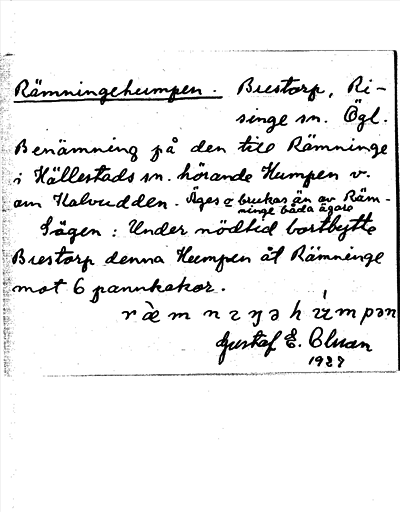 Rämningehumpen. Brestorp, Ri-
singe sn. Ögl.
Benämning på den till Rämninge
i Hällestads sn. hörande Humpen v.
om Halvudden. Äges o brukas än av Räm-
ninge båda ägare
Sägen: Under nödtid bortbytte
Brestorp denna Humpen åt Rämninge
mot 6 pannkakor.
Gustaf E. Olsson
1927